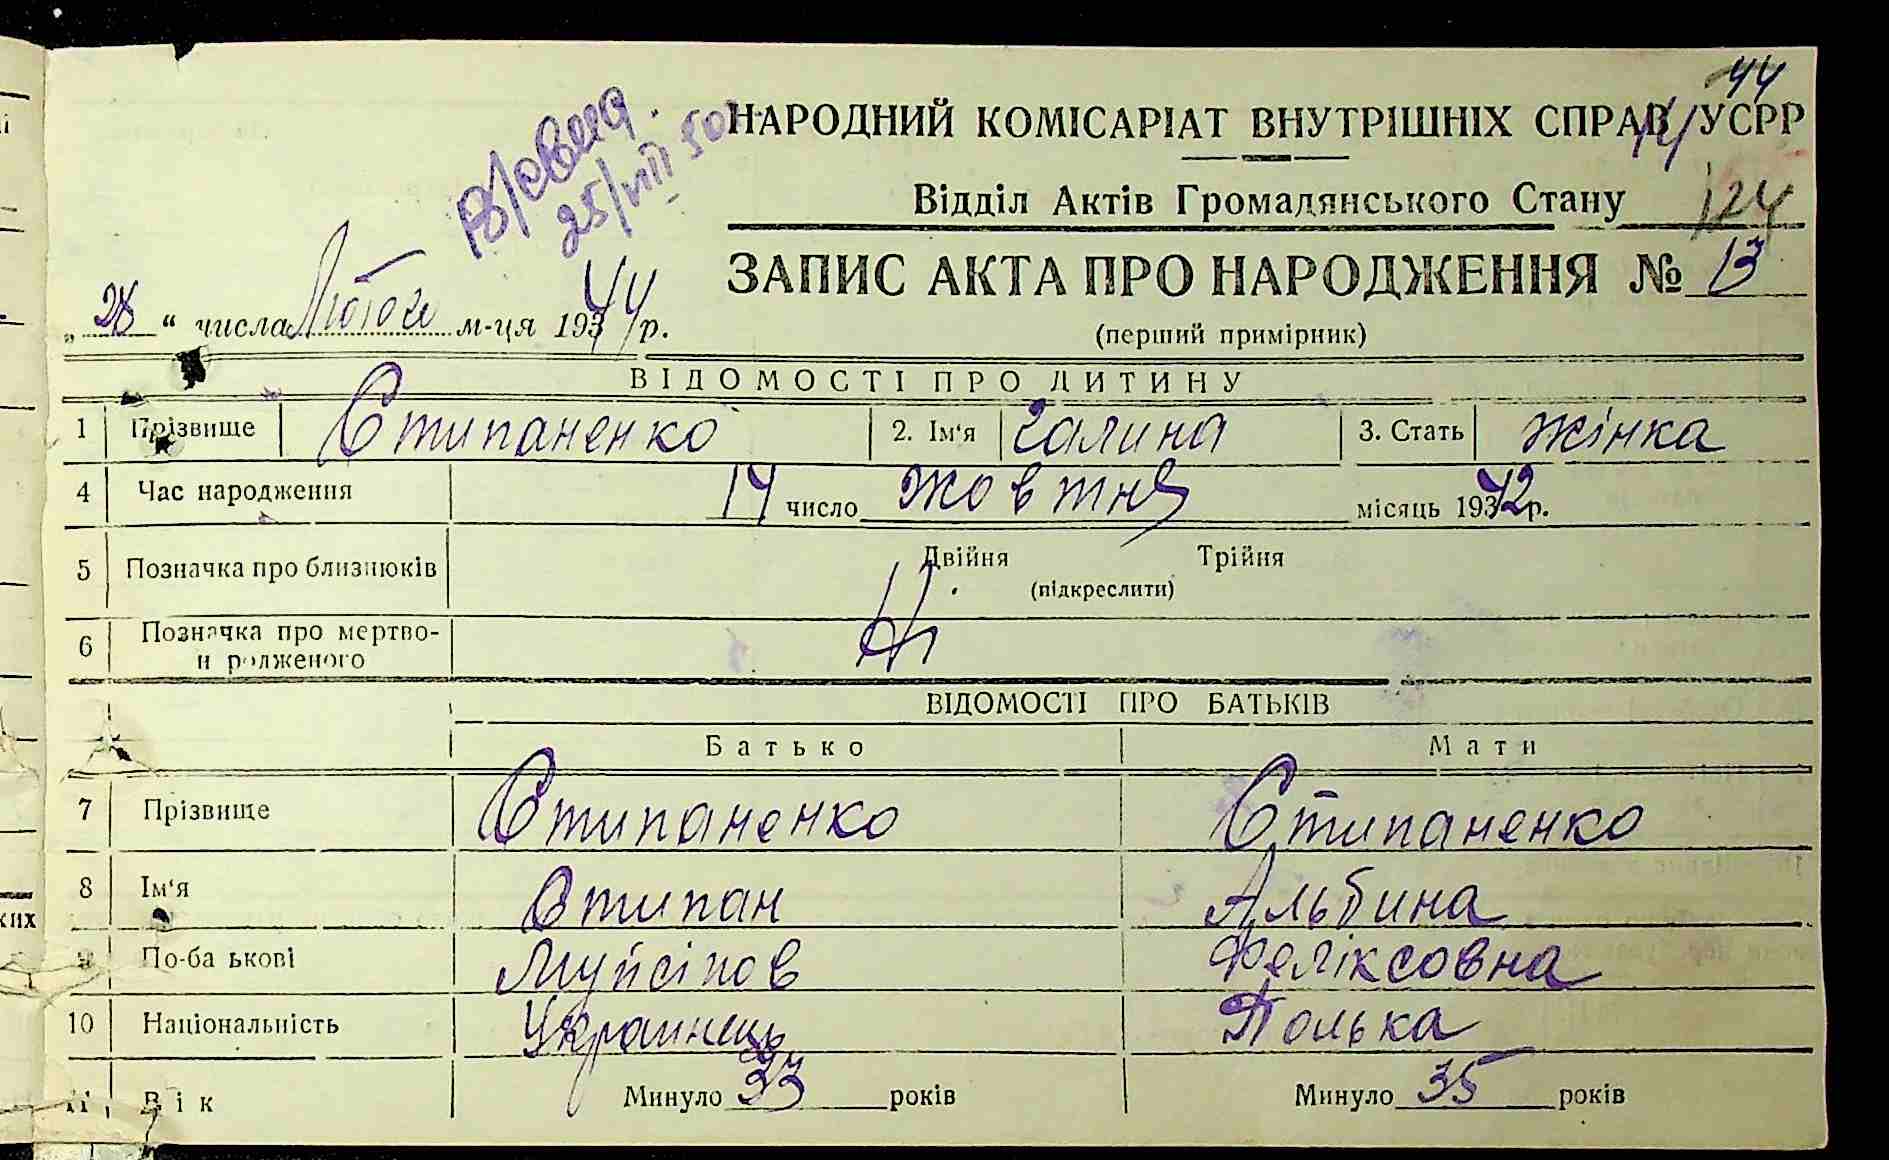 44
НАРОДНИЙ КОМІСАРІАТ ВНУТРІШНІХ СПРАВ УСРР
Відділ Актів Громадянського Стану 124
25/VIII 50
ЗАПИС АКТА ПРО НАРОДЖЕННЯ № 13
„28“ числа Лютого м-ця 1944 р.
(перший примірник)
ВІДОМОСТІ ПРО ДИТИНУ
1 Прізвище Стипаненко 2. Ім‘я Галина 3. Стать жінка
4 Час народження 14 число жовтня місяць 1942 р.
5 Позначка про близнюків Двійня Трійня
(підкреслити)
6 Позначка про мертво-
н родженого Ні
ВІДОМОСТІ ПРО БАТЬКІВ
Батько Мати
7 Прізвище Стипаненко Стипаненко
8 Ім‘я Стипан Альбина
9 По-ба ькові Феліксовна
10 Національність Украинець Полька
11 Вік Минуло 33 років Минуло 35 років
ких